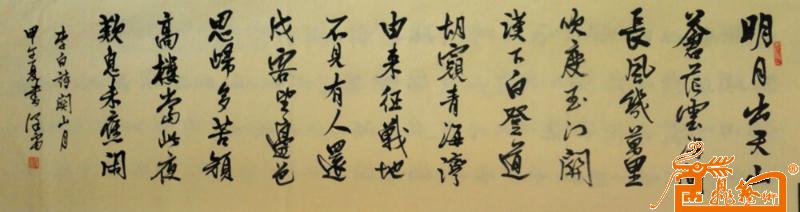 明月出天山
蒼茫雲海間
長風幾萬里
吹度玉門關
漢下白登道
胡窺青海灣
由来征戰地
不見有人還
戍客望邊色
思歸多苦顏
高樓當此夜
歎息未應閑
李白詩關山月
甲午夏書